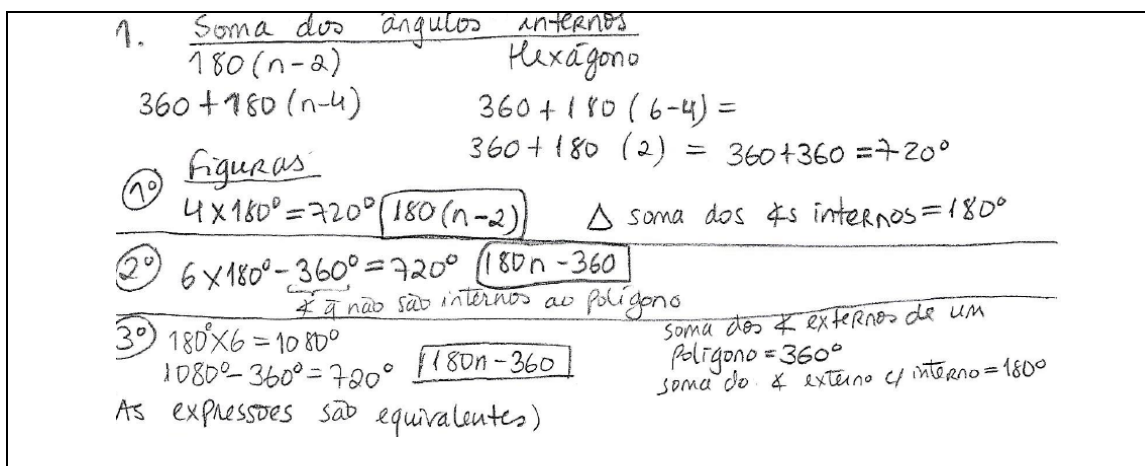 1. Soma dos ângulos internos
180(n-2) Hexágono
360+180(n-4) 360+180(6-4)=
360+180 (2) = 360+360=720°
Figuras
1º 4×180°=720° 180(n-2) △ soma dos ∡s internos=180°
2º 6×180°-360°=720° 180n-360
∡ q̄ não são internos ao polígono
3º 180°×6=1080°
1080°-360°=720° 180n-360
soma dos ∡ externos de um
polígono=360°
soma do ∡ externo c/ interno=180°
As expressões são equivalentes)